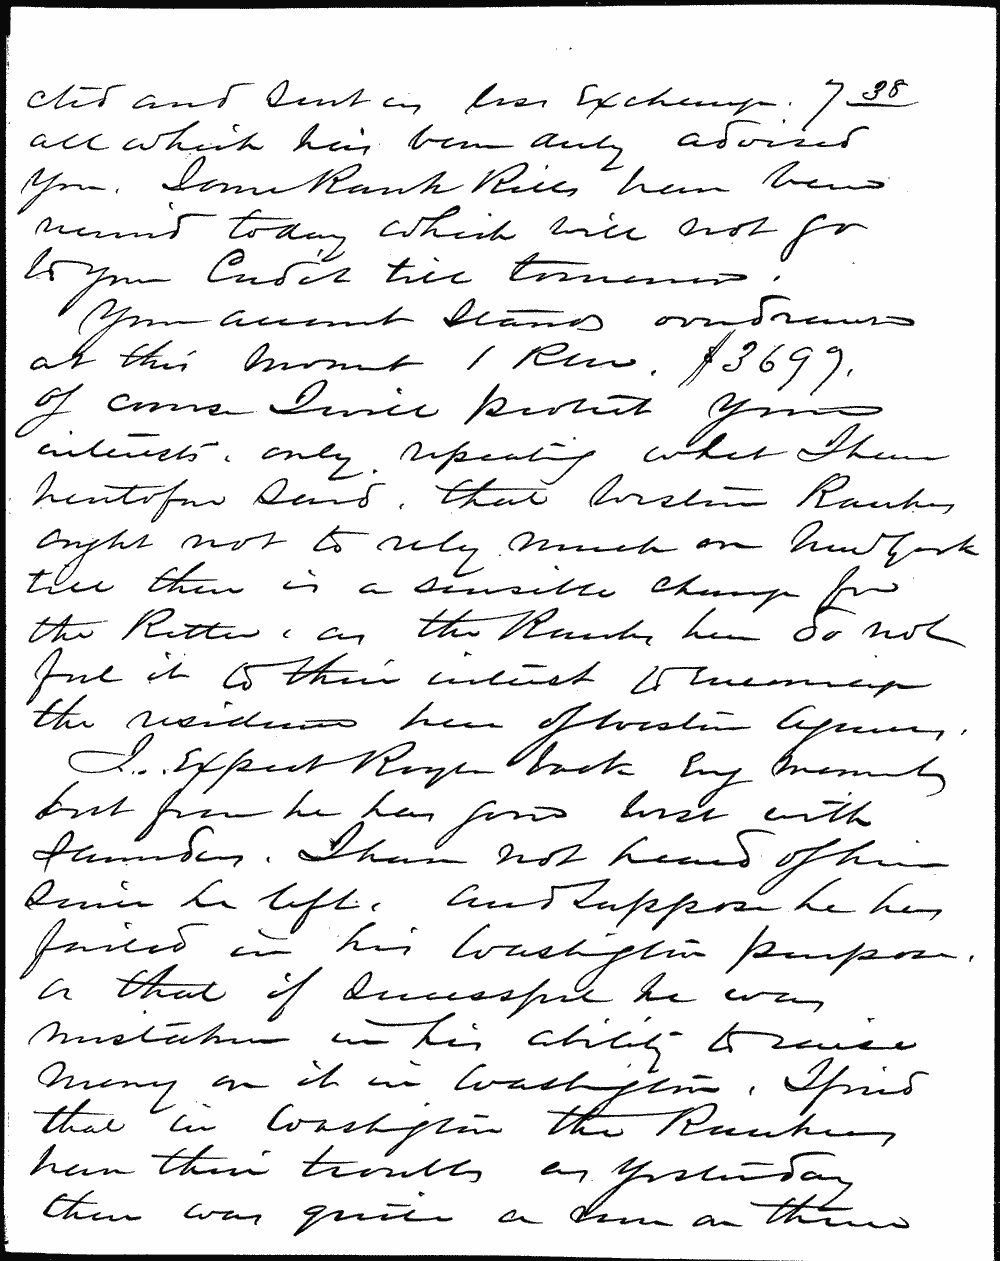 cted and sent on less Exchange. 7 38
all which has been duly advised
you. Some Bank Bills have been
received today which will not go
to your Credit till tomorrow.
Your account stands overdrawn
at this moment 1 P.M. $3699.
of course I will protect your
interests. only repeating what I have
heretofore said, that western Bankers
ought not to rely much on New York
till there is a sensible change for
the Better, as the Banks here do not
feel it to their interest to encourage
the residence here of western Agencies.
I Expect back Evy moment
but fear he has gone west with
Saunders. I have not heard of him
since he left. and suppose he has
failed in his Washington purpose.
or that if successful he was
mistaken in his ability to raise
money on it in Washington. I find
that in Washington the Bankers
have their troubles as yesterday
there was quite a run on three